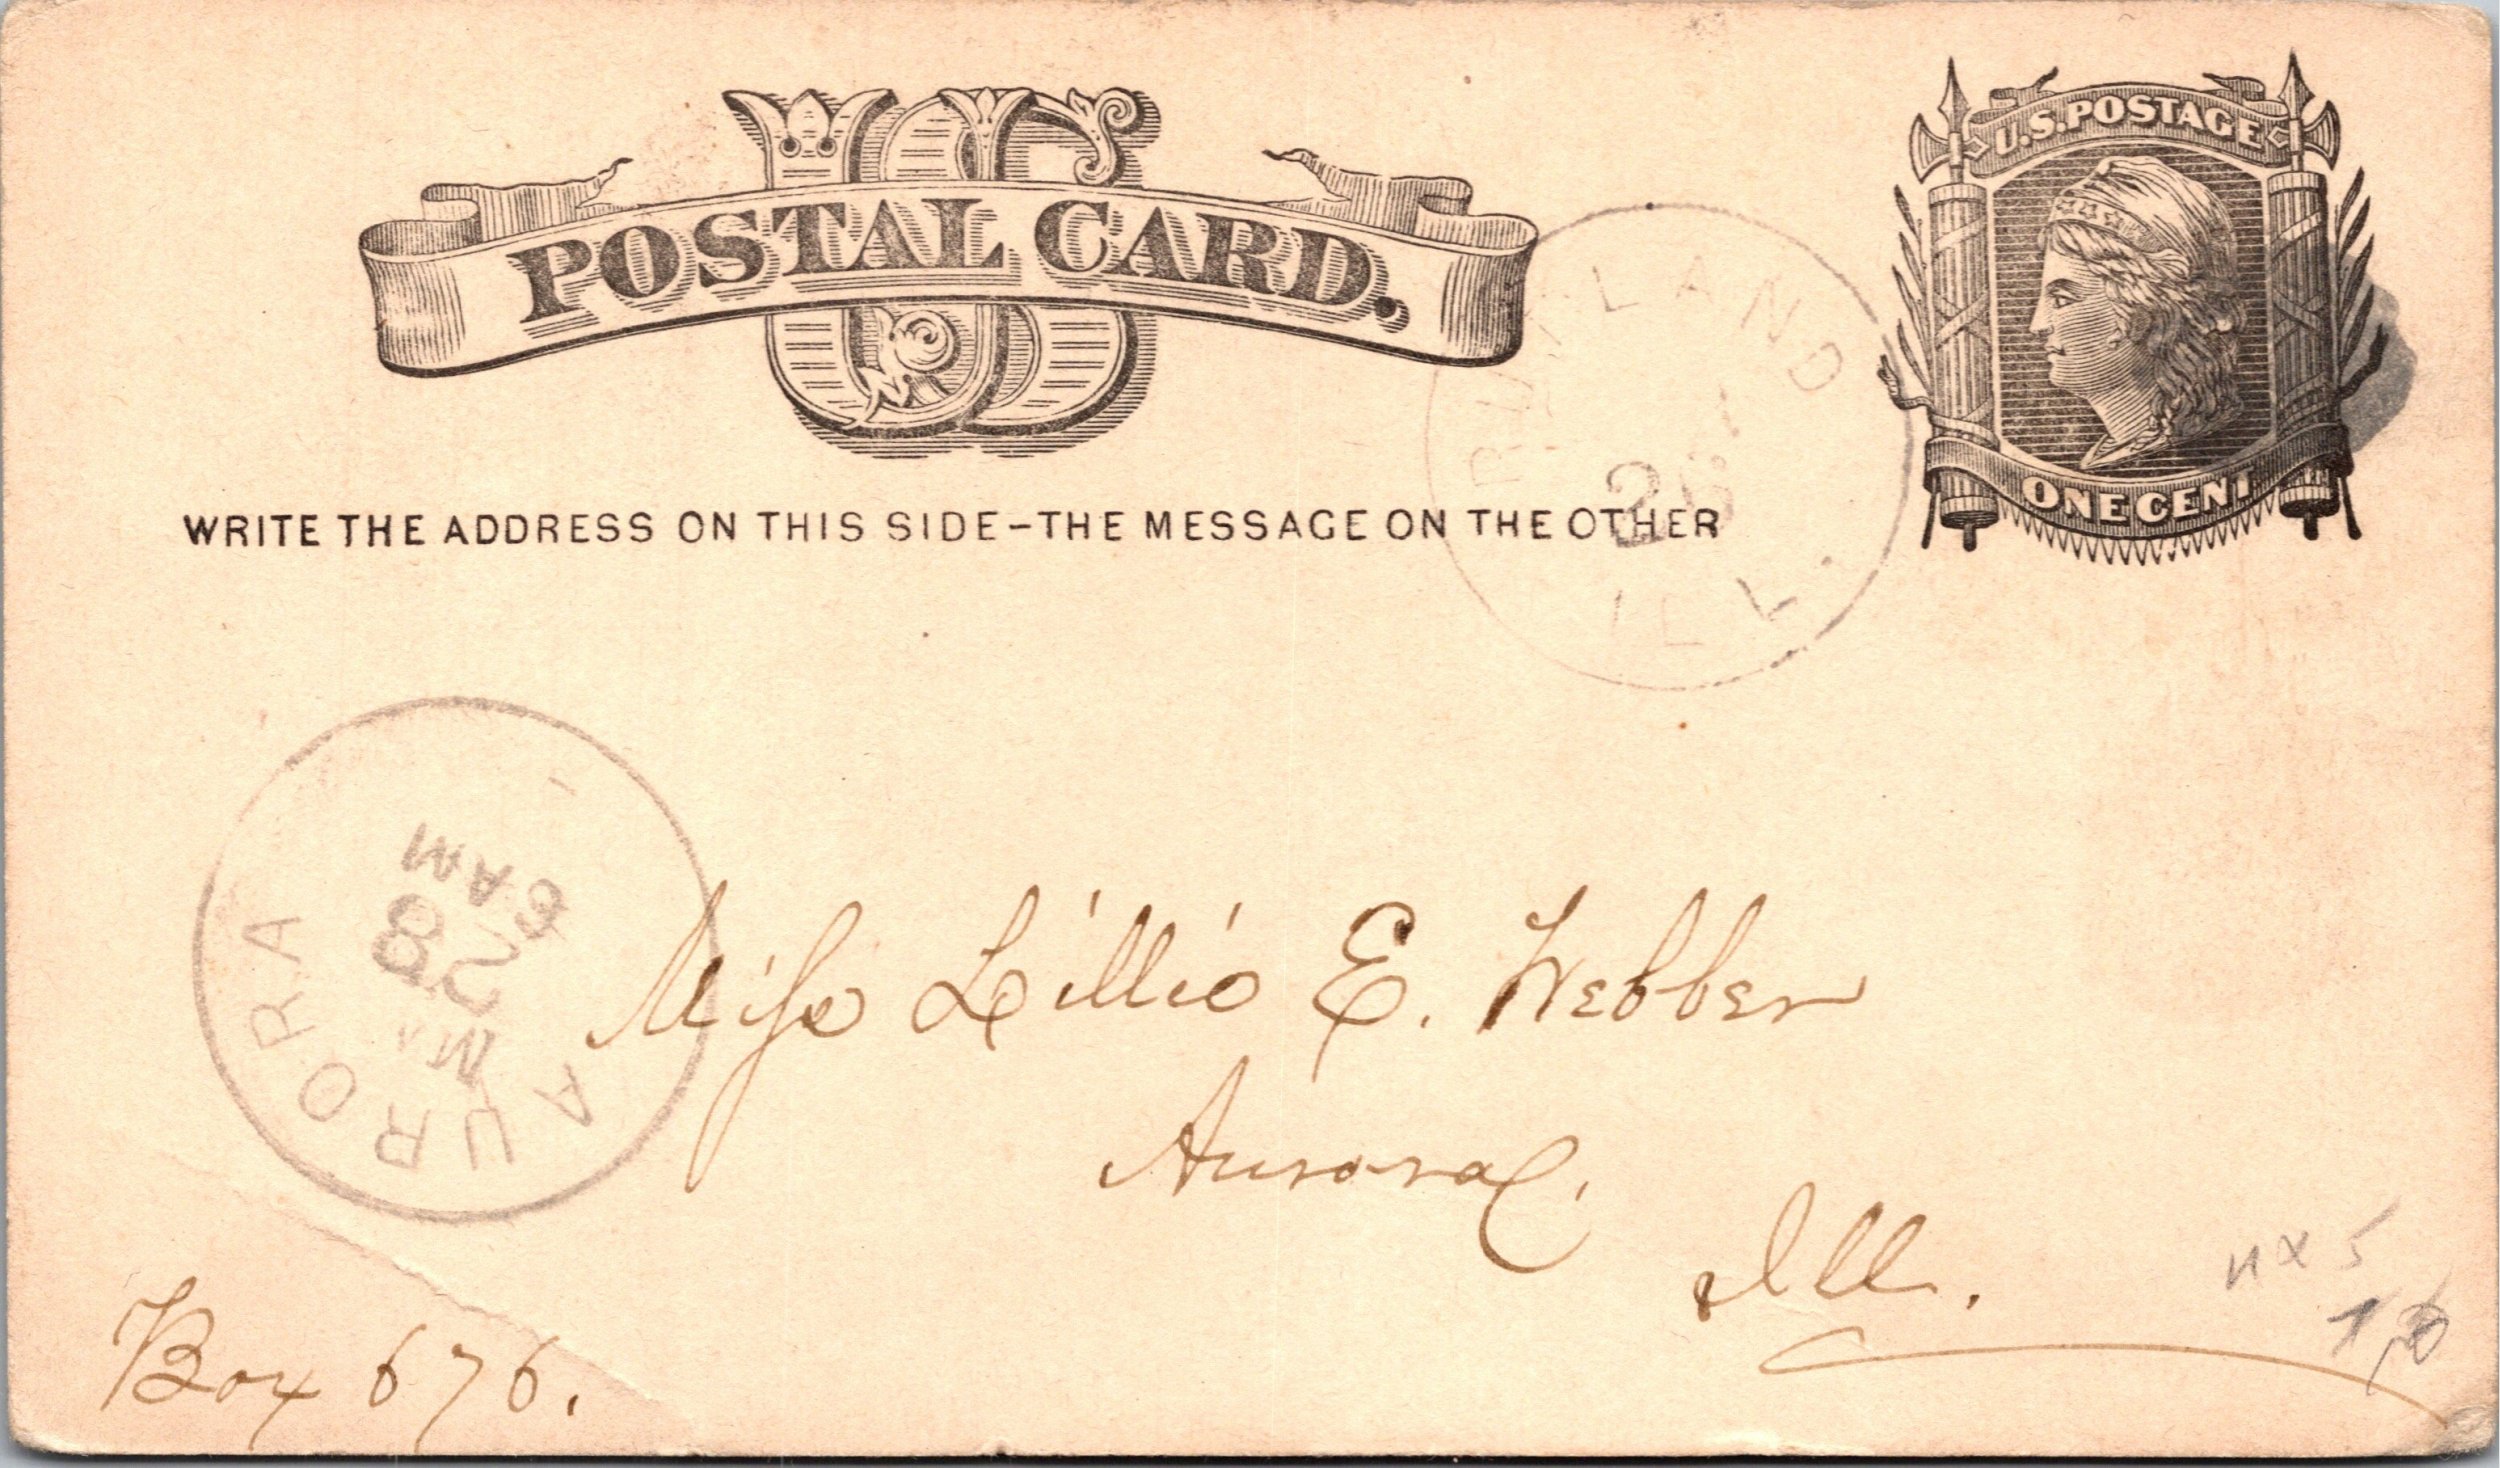 US
POSTAL CARD.
U.S. POSTAGE
ONE CENT
WRITE THE ADDRESS ON THIS SIDE-THE MESSAGE ON THE OTHER
ILL.
26
AURORA
28
6 AM
Miss Lillie E. Webber
Aurora,
Ill.
Box 676.